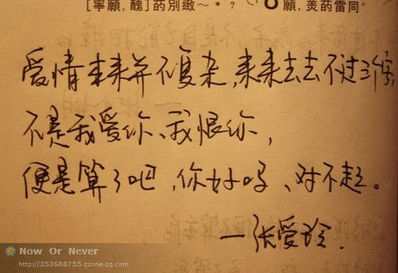 [寧願. 醜] 葯別緻～*? 願. 羙葯雷同。
爱情本来并不复杂,来来去去不过三个字
不是我爱你、我恨你,
便是算了吧、你好吗、对不起。
—张爱玲.
Now Or Never
http://353688755.qzone.qq.com